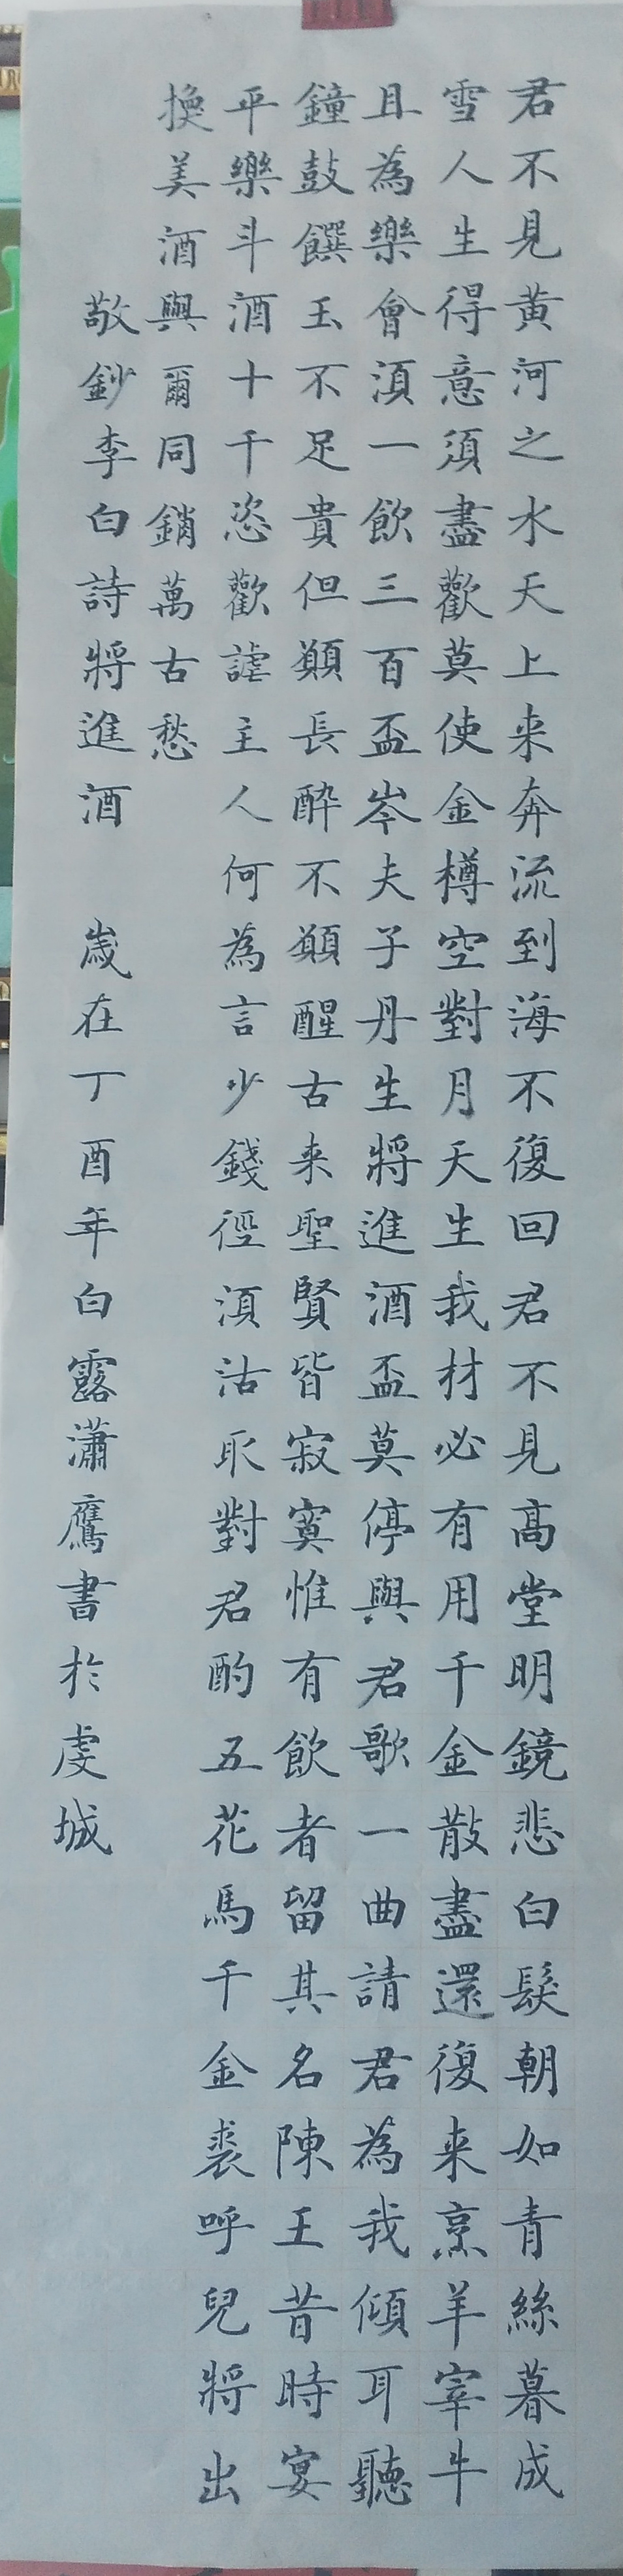 君不見黃河之水天上来奔流到海不復回君不見高堂明鏡悲白髮朝如青絲暮成
雪人生得意須盡歡莫使金樽空對月天生我材必有用千金散盡還復来烹羊宰牛
且為樂會湏一飲三百盃岑夫子丹生將進酒盃莫停與君歌一曲請君為我傾耳聽
鐘鼓饌玉不足貴但願長醉不願醒古来聖賢皆寂寞惟有飲者留其名陳王昔時宴
平樂斗酒十千恣歡謔主人何為言少錢徑湏沽取對君酌五花馬千金裘呼兒將出
換美酒與爾同銷萬古愁
敬鈔李白詩將進酒 歲在丁酉年白露瀟鷹書於虔城